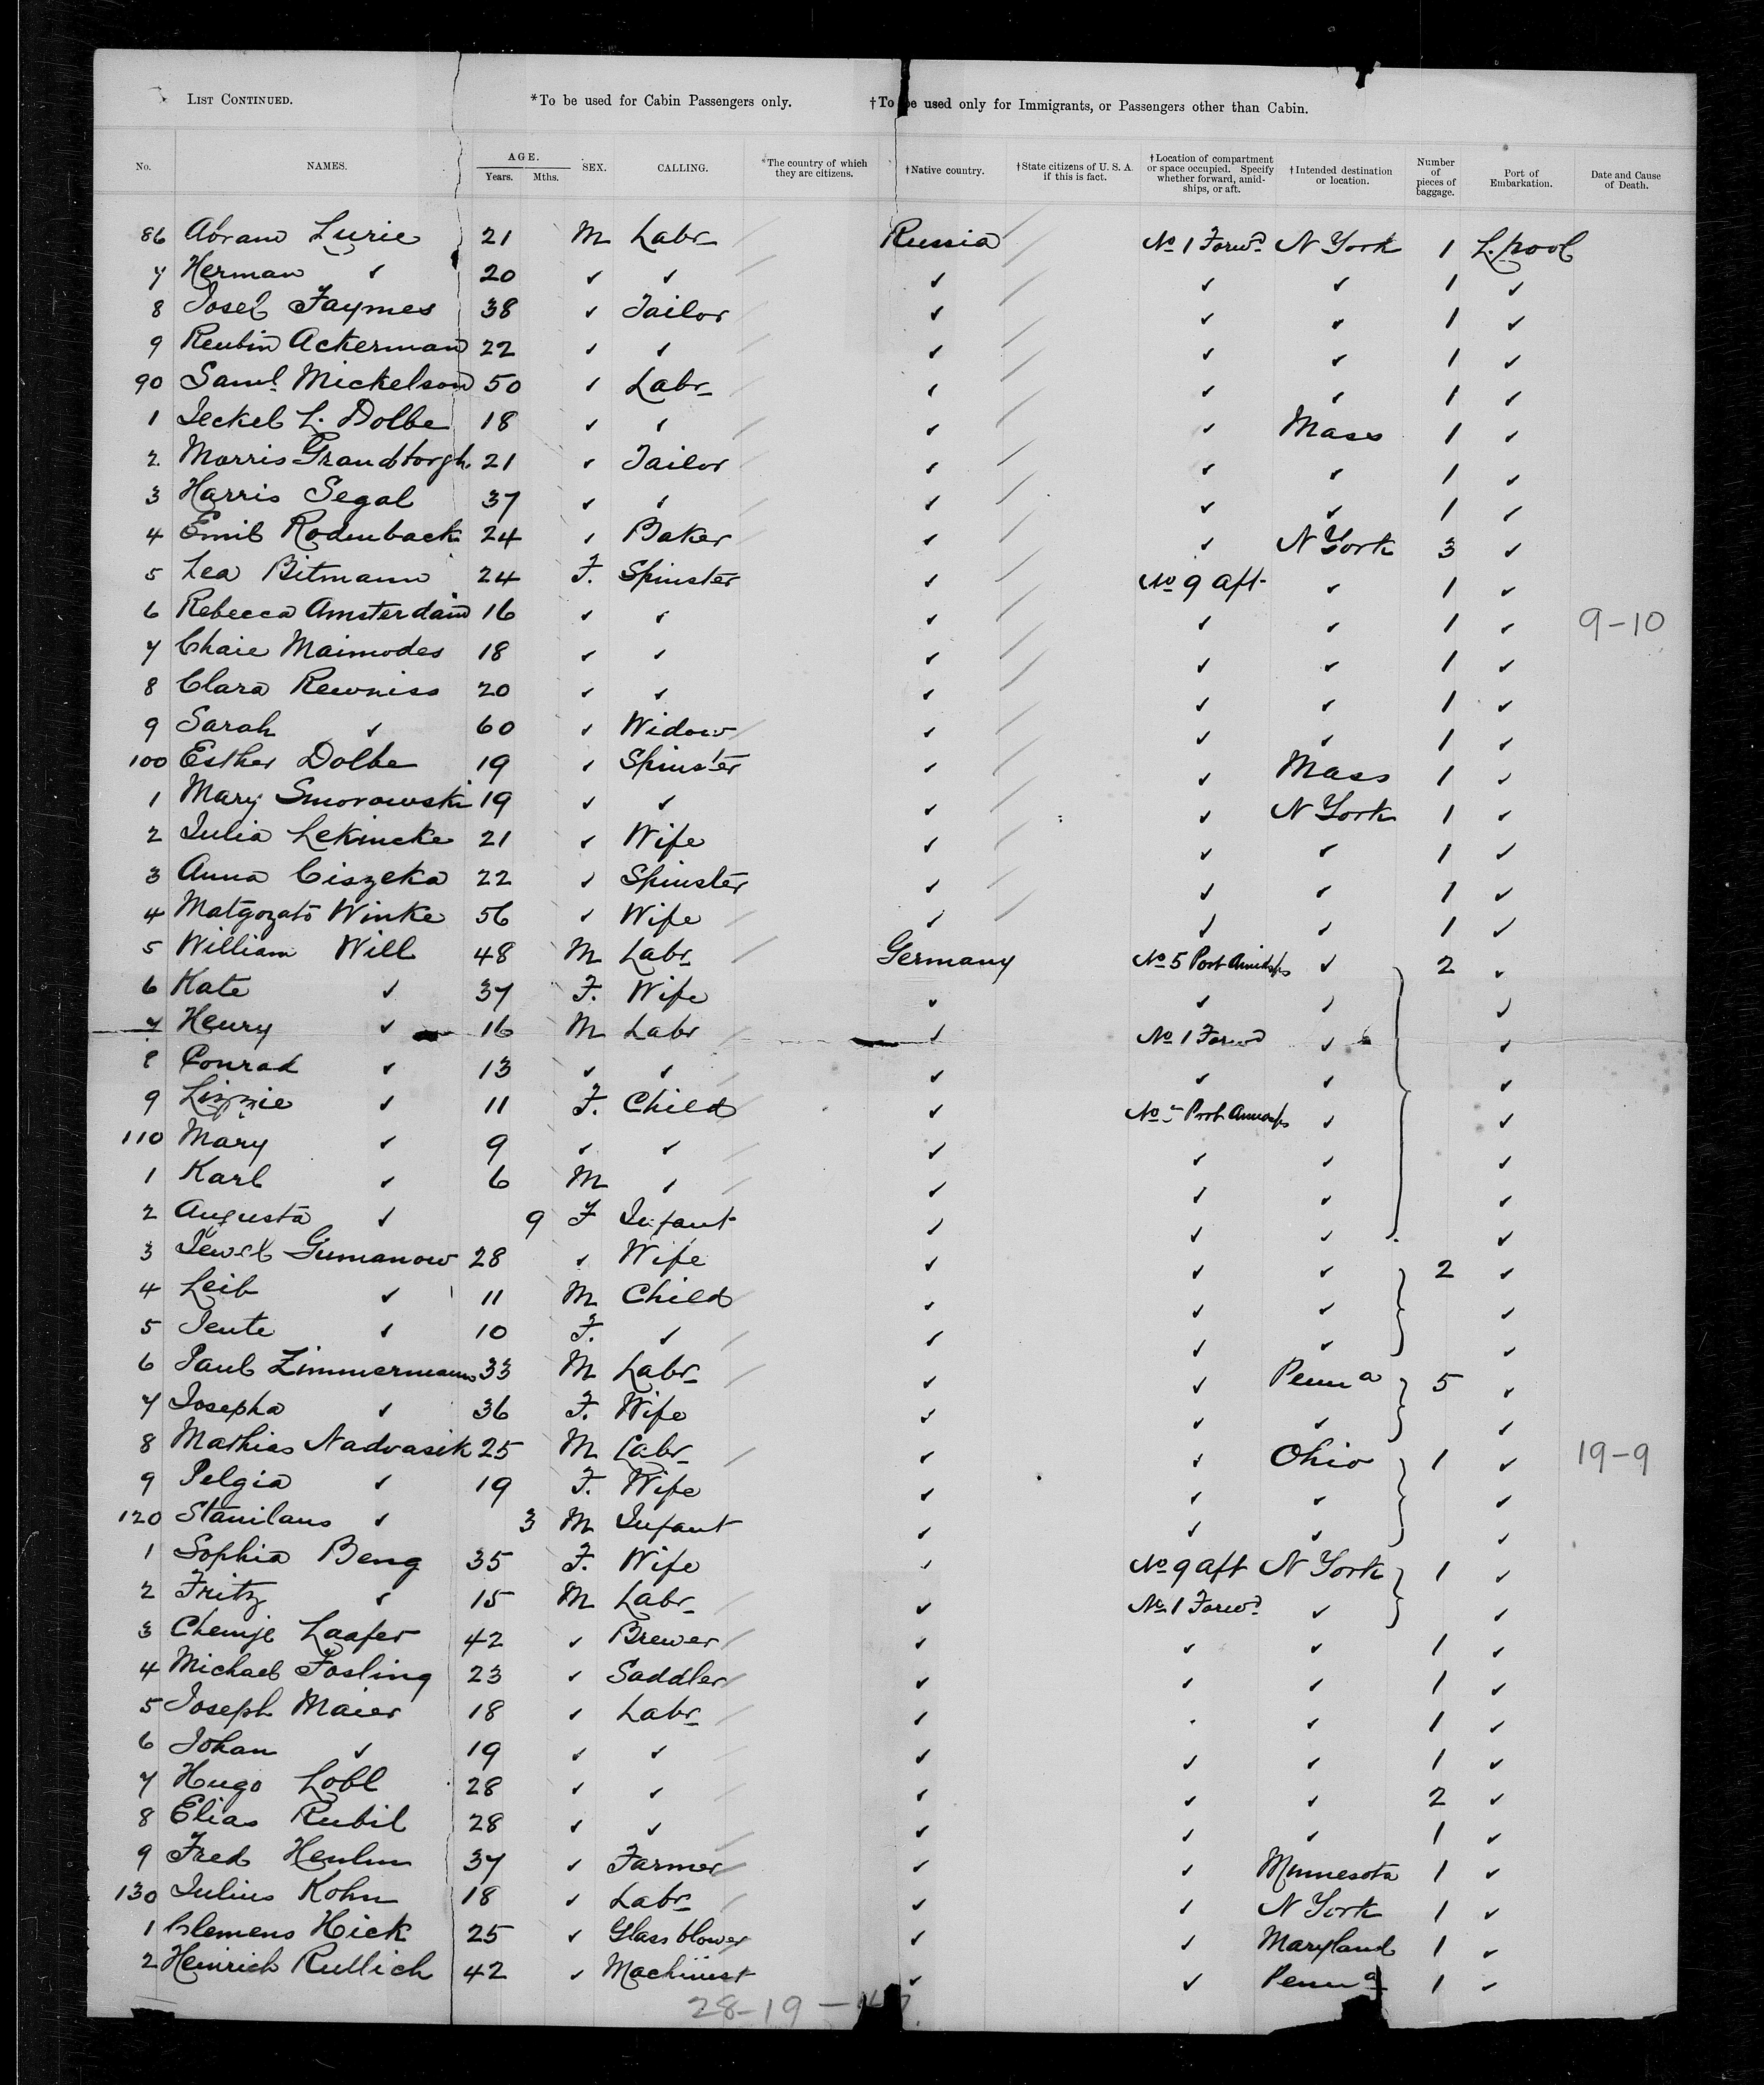 LIST CONTINUED. *To be used for Cabin Passengers only. †To be used only for Immigrants, or Passengers other than Cabin.
No. NAMES. AGE. Years. Mths. SEX. CALLING. *The country of which they are citizens. †Native country. †State citizens of U. S. A. if this is fact. †Location of compartment or space occupied. Specify whether forward, amidships, or aft. †Intended destination or location. Number of pieces of baggage. Port of Embarkation. Date and Cause of Death.
86 Abram Lurie 21 M Labr Russia No 1 Forwd N York 1 L.pool
7 Herman ✓ 20 ✓ ✓ ✓ ✓ ✓ 1 ✓
8 Josel Faymes 38 ✓ Tailor ✓ ✓ ✓ 1 ✓
9 Reubin Ackerman 22 ✓ ✓ ✓ ✓ ✓ 1 ✓
90 Saml Mickelson 50 ✓ Labr ✓ ✓ ✓ 1 ✓
1 Jeckel L. Dolbe 18 ✓ ✓ ✓ ✓ Mass 1 ✓
2 Morris 21 ✓ Tailor ✓ ✓ ✓ 1 ✓
3 Harris Segal 37 ✓ ✓ ✓ ✓ ✓ 1 ✓
4 Emil Rodenback 24 ✓ Baker ✓ ✓ N York 3 ✓
5 Lea Bitmann 24 F. Spinster ✓ No 9 aft ✓ 1 ✓
6 Rebecca Amsterdam 16 ✓ ✓ ✓ ✓ ✓ 1 ✓ 9-10
7 Chaie Maimodes 18 ✓ ✓ ✓ ✓ ✓ 1 ✓
8 Clara Rewniss 20 ✓ ✓ ✓ ✓ ✓ 1 ✓
9 Sarah ✓ 60 ✓ Widow ✓ ✓ ✓ 1 ✓
100 Esther Dolbe 19 ✓ Spinster ✓ ✓ Mass 1 ✓
1 Mary Smorowski 19 ✓ ✓ ✓ ✓ N York 1 ✓
2 Julia Lekincke 21 ✓ Wife ✓ ✓ ✓ 1 ✓
3 Anna Ciszeka 22 ✓ Spinster ✓ ✓ ✓ 1 ✓
4 Matgozato Winke 56 ✓ Wife ✓ ✓ ✓ 1 ✓
5 William Will 48 M Labr Germany No 5 Port Amidsps ✓ 2 ✓
6 Kate ✓ 37 F. Wife ✓ ✓ ✓ ✓
7 Henry ✓ 16 M Labr ✓ No 1 Forwd ✓ ✓
8 Conrad ✓ 13 ✓ ✓ ✓ ✓ ✓ ✓
9 Lizzie ✓ 11 F. Child ✓ No 5 Port Amidsps ✓ ✓
110 Mary ✓ 9 ✓ ✓ ✓ ✓ ✓ ✓
1 Karl ✓ 6 M ✓ ✓ ✓ ✓ ✓
2 Augusta ✓ 9 F Infant ✓ ✓ ✓ ✓
3 Gumanow 28 ✓ Wife ✓ ✓ ✓ 2 ✓
4 Leib ✓ 11 M Child ✓ ✓ ✓ ✓
5 Jente ✓ 10 F. ✓ ✓ ✓ ✓ ✓
6 Paul Zimmermann 33 M Labr ✓ ✓ Penna 5 ✓
7 Josepha ✓ 36 F. Wife ✓ ✓ ✓ ✓
8 Mathias Nadvasik 25 M Labr ✓ ✓ Ohio 1 ✓ 19-9
9 Pelgia ✓ 19 F. Wife ✓ ✓ ✓ ✓
120 Stanilaus ✓ 3 M Infant ✓ ✓ ✓ ✓
1 Sophia Beng 35 F. Wife ✓ No 9 aft N York 1 ✓
2 Fritz ✓ 15 M Labr ✓ No 1 Forwd ✓ ✓
3 Chemje Laafer 42 ✓ Brewer ✓ ✓ ✓ 1 ✓
4 Michael Fosling 23 ✓ Saddler ✓ ✓ ✓ 1 ✓
5 Joseph Maier 18 ✓ Labr ✓ ✓ ✓ 1 ✓
6 Johan ✓ 19 ✓ ✓ ✓ ✓ ✓ 1 ✓
7 Hugo Lobl 28 ✓ ✓ ✓ ✓ ✓ 2 ✓
8 Elias Rubil 28 ✓ ✓ ✓ ✓ ✓ 1 ✓
9 Fred Henlun 37 ✓ Farmer ✓ ✓ Minnesota 1 ✓
130 Julius Kohn 18 ✓ Labr ✓ ✓ N York 1 ✓
1 Clemens Hick 25 ✓ Glass blower ✓ ✓ Maryland 1 ✓
2 Heinrich Rullich 42 ✓ Machinist ✓ ✓ Penna 1 ✓
28-19-